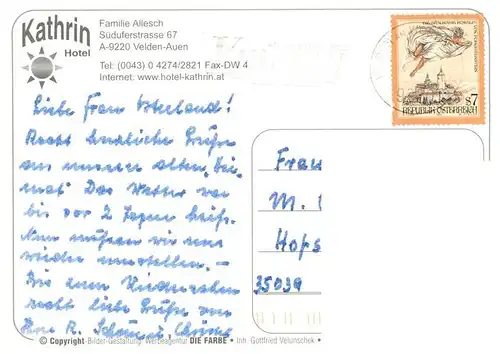 Kathrin
Hotel
Familie Allesch
Süduferstrasse 67
A-9220 Velden-Auen
Tel: (0043) 0 4274/2821 Fax-DW 4
Internet: www.hotel-kathrin.at
S7
REPUBLIK ÖSTERREICH
Liebe Frau Osterland!
Recht herzliche Grüße
aus unserer alten „Hei-
mat“ Das Wetter war
bis vor 2 Tagen heiß.
Nun müssen wir uns
wieder umstellen. –
Bis zum Wiedersehen
recht liebe Grüße von
Ihrer R.
Frau
M.
Hofs
35039
© Copyright • Bilder-Gestaltung Werbeagentur DIE FARBE • Inh. Gottfried Velunschek •